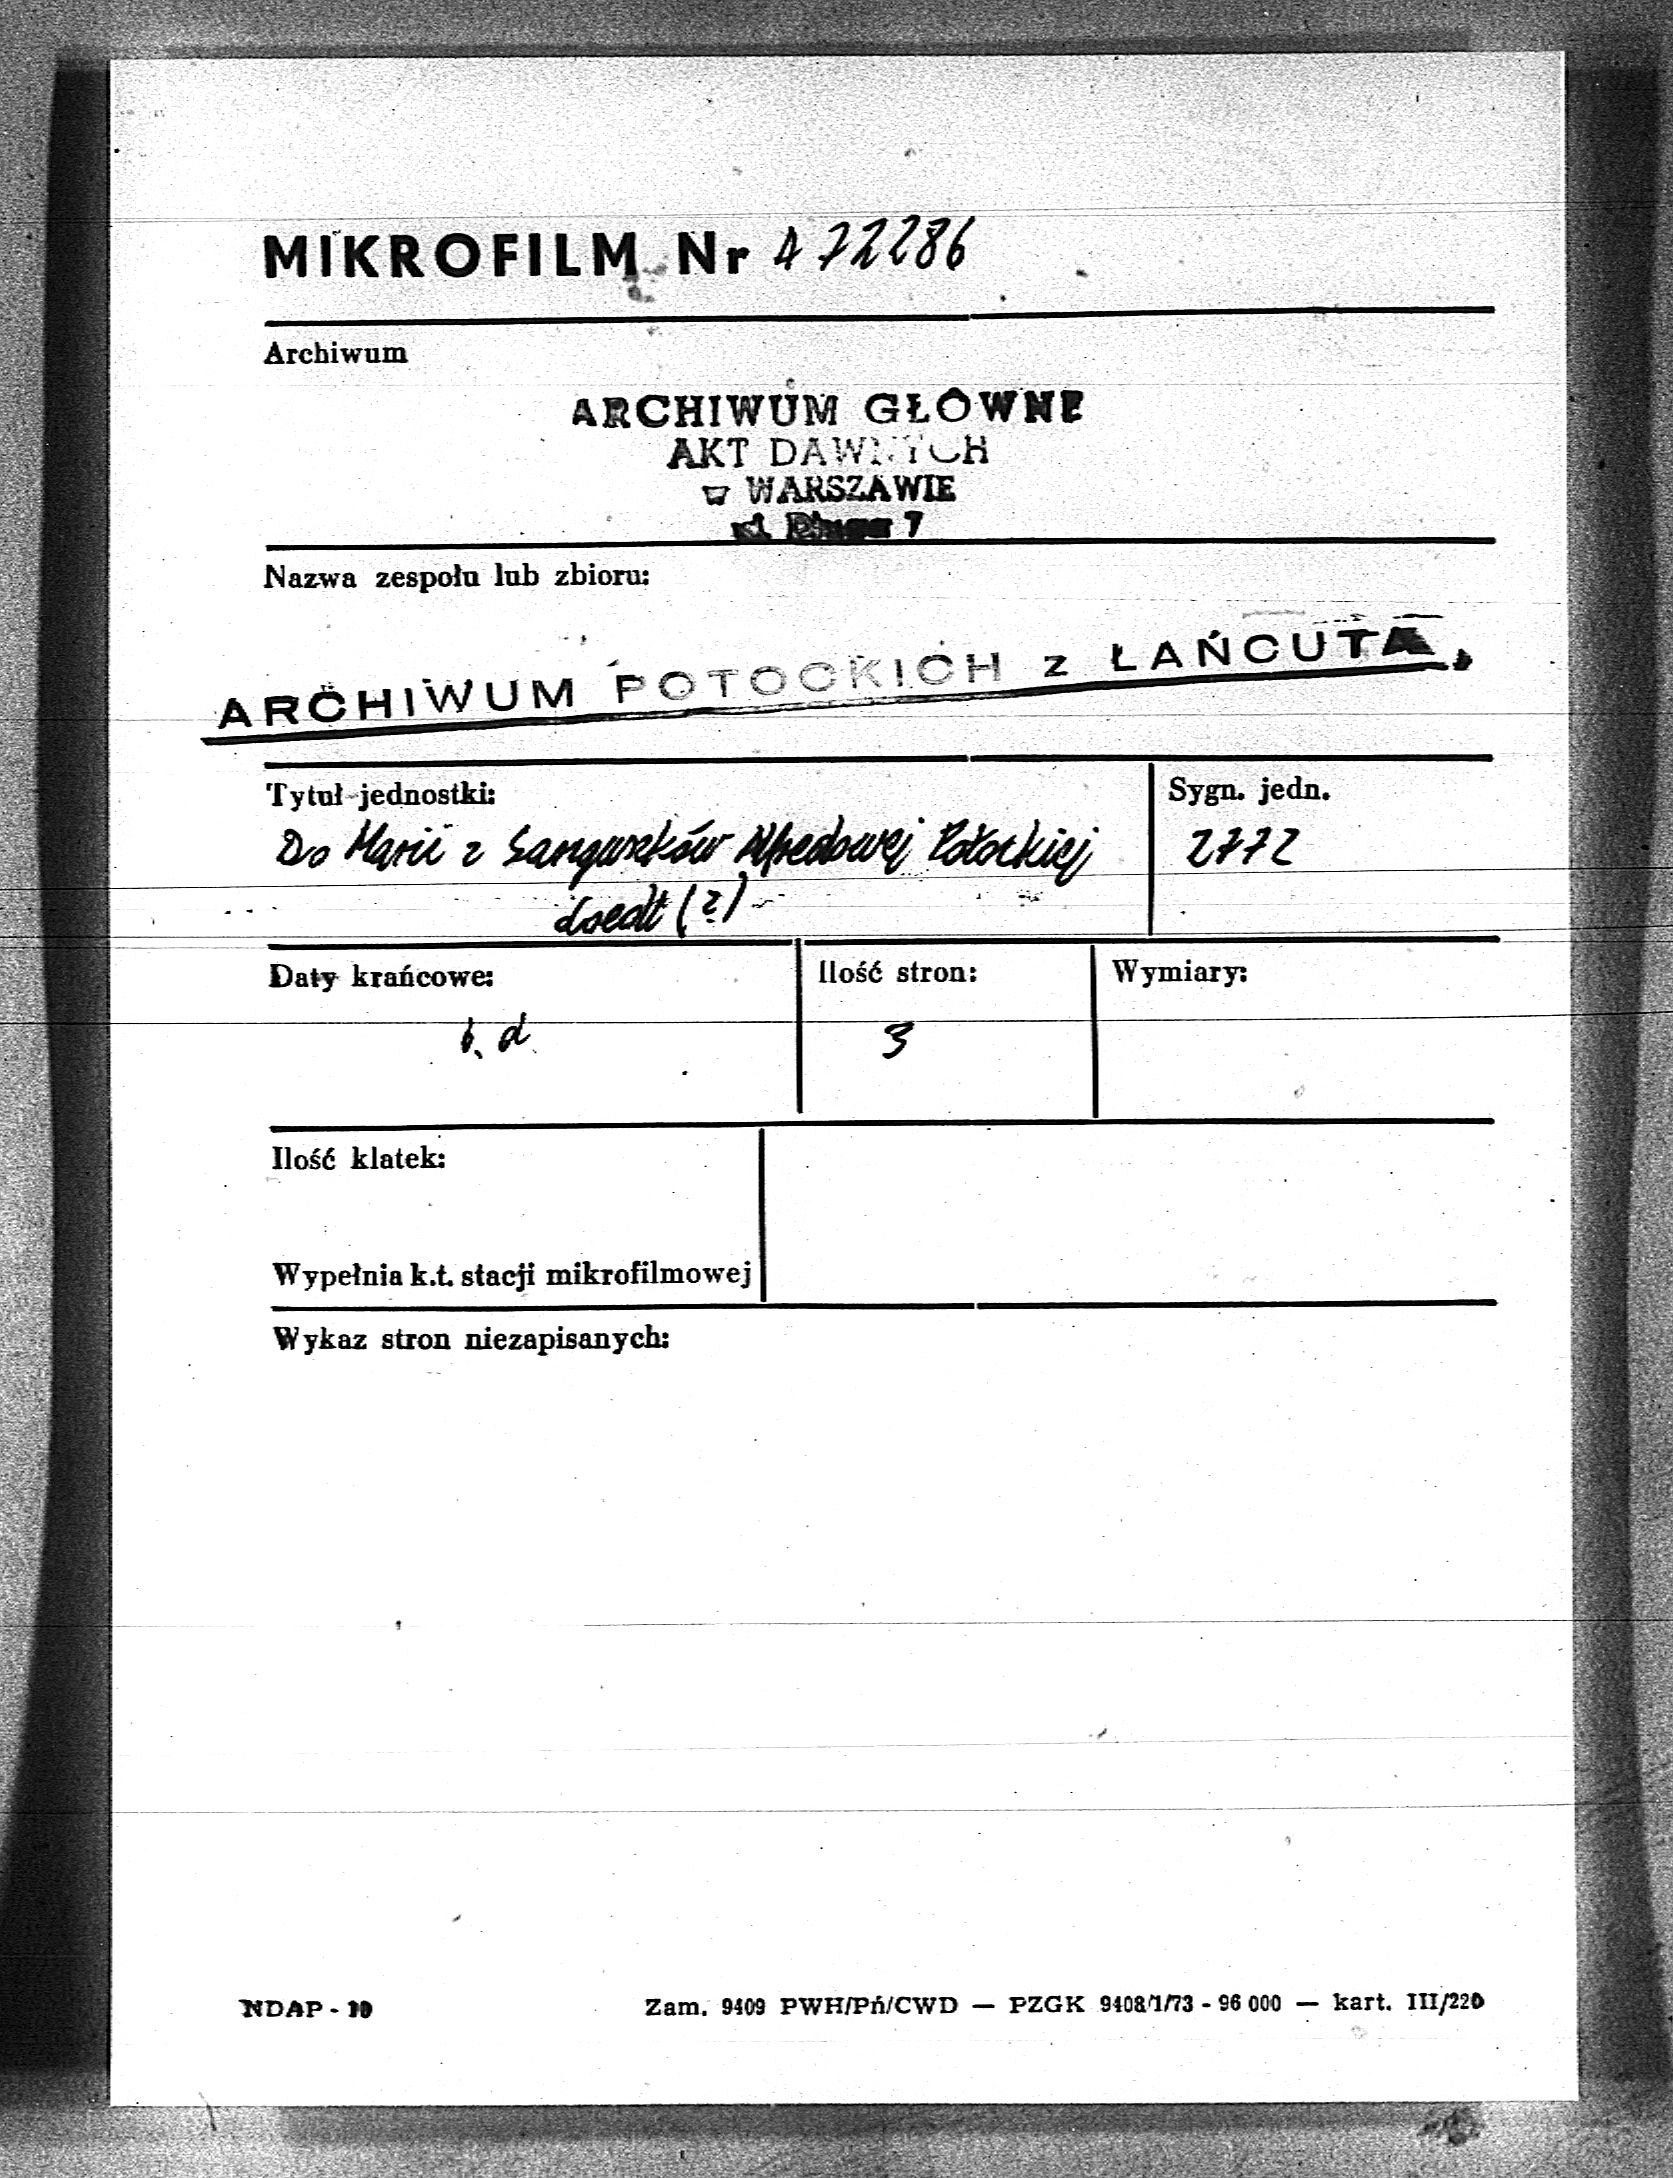 MIKROFILM Nr A 72286
Archiwum
ARCHIWUM GŁÓWNE
AKT DAWNYCH
w WARSZAWIE
ul. Długa 7
Nazwa zespołu lub zbioru:
ARCHIWUM POTOCKICH z ŁAŃCUTA
Tytuł jednostki:
Sygn. jedn.
Do Marii z Sanguszków Alfredowej Potockiej
2772
(?)
Daty krańcowe:
Ilość stron:
Wymiary:
b. d
3
Ilość klatek:
Wypełnia k.t. stacji mikrofilmowej
Wykaz stron niezapisanych:
NDAP - 10
Zam. 9409 PWH/Pń/CWD — PZGK 9408/1/73 - 96 000 — kart. III/220